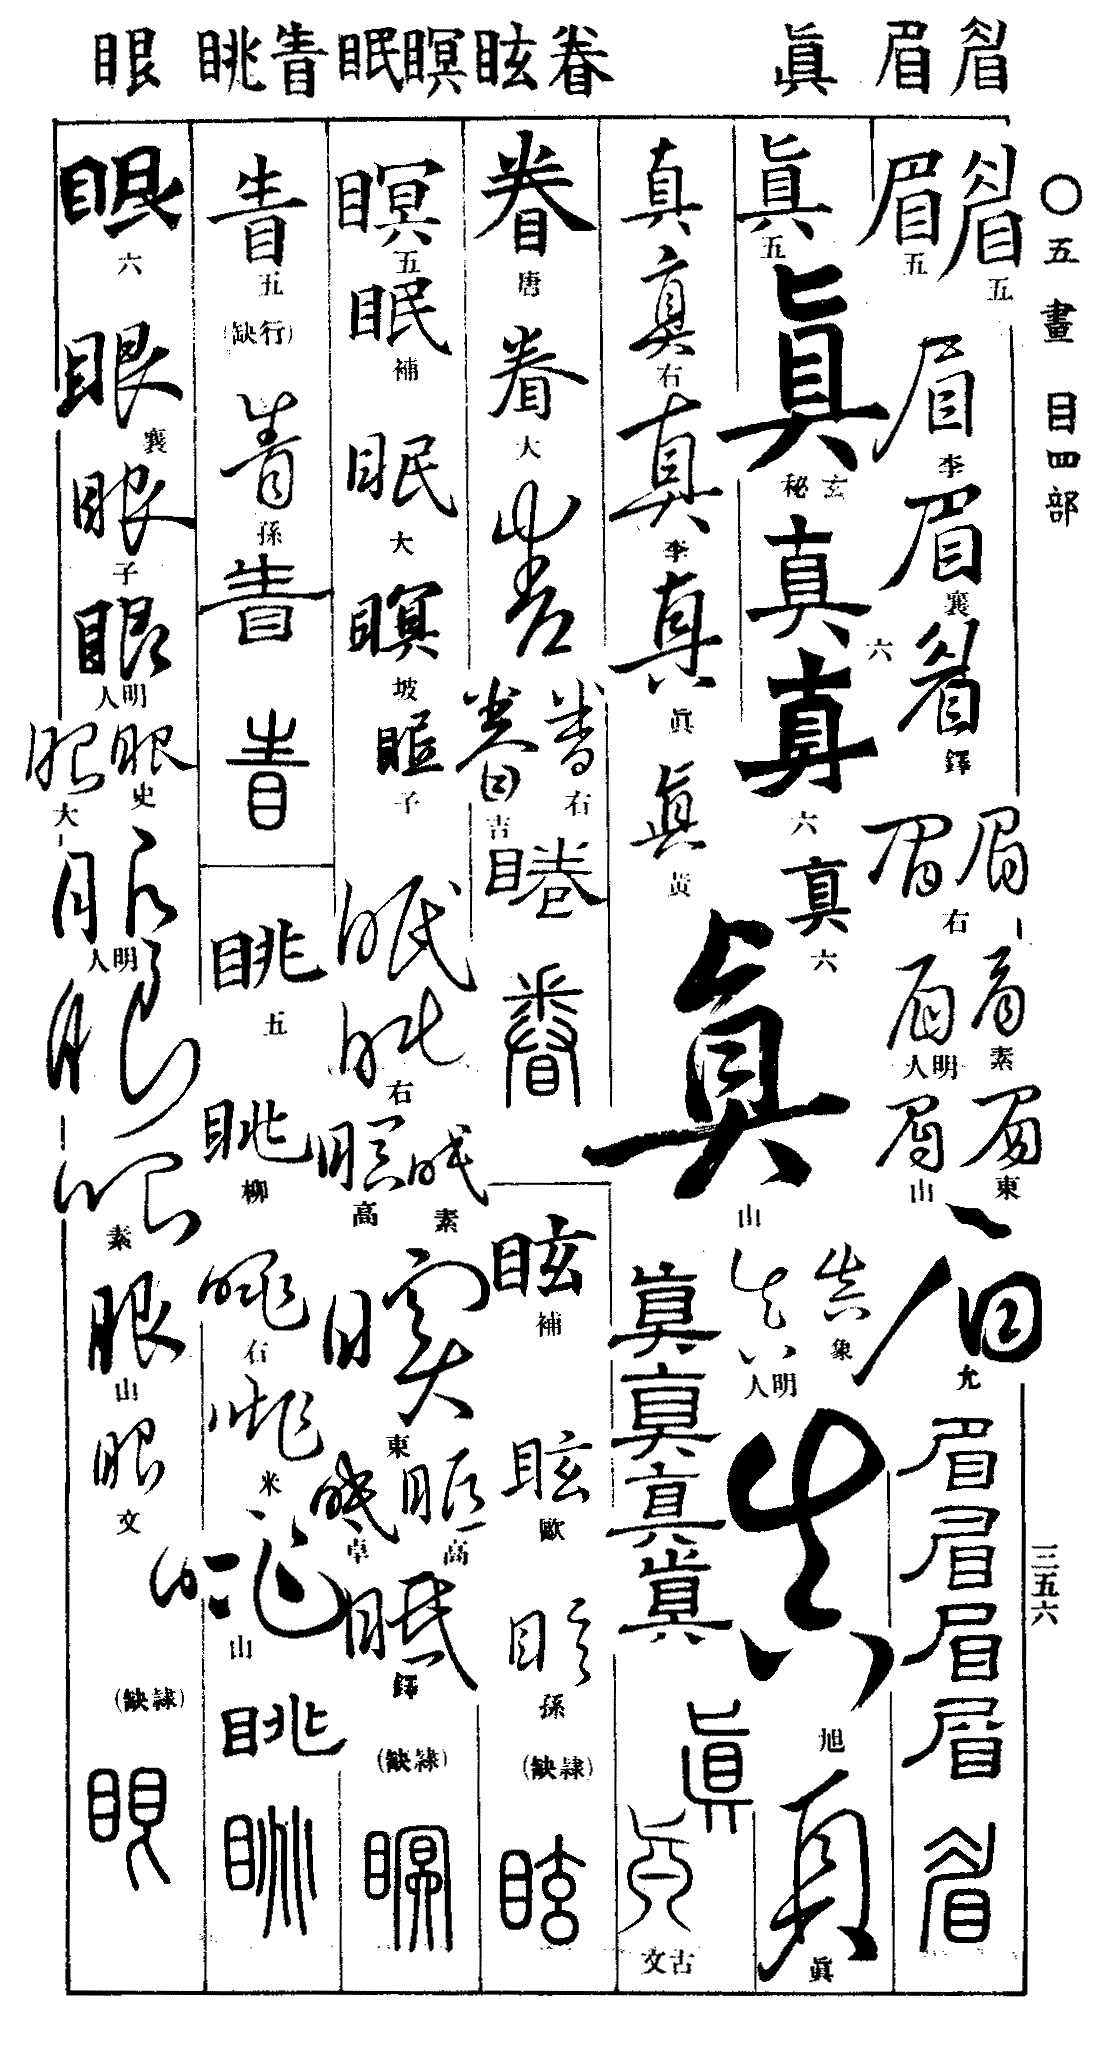 眉 眞 眷 眩 瞑 眠 眚 眺 眼
〇五畫 目四部
三五六
眉 五
眉 五
眉 李
眉 襄
眉 鐸
眉 眉 右
眉 素
眉 明人
眉 東
眉 山
眉 允
眉
眉
眉
眉
眉
眞 五
眞 玄秘
真 六
真 六
真 六
眞 山
真 象
真 明人
真 旭
真 眞
真
真 右
真 李
真 眞
眞 黃
眞
眞
眞
眞
眞
古文
眷 唐
眷 大
眷
眷 右
眷 吉
睠
眷
眩 補
眩 歐
眩 孫
(缺隷)
眩
瞑 五
眠 補
眠 大
瞑 坡
眠 子
眠 眠 右
瞑 高
眠 素
瞑 東
眠 高
眠 卓
眠 鐸
(缺隷)
瞑
眚 五
(缺行)
眚 孫
眚
眚
眺 五
眺 柳
眺 石
眺 米
眺 山
眺
眺
眼 六
眼 襄
眼 子
眼 明人
眼 史
眼 大
眼 明人
眼
眼 素
眼 山
眼 文
(缺隷)
眼